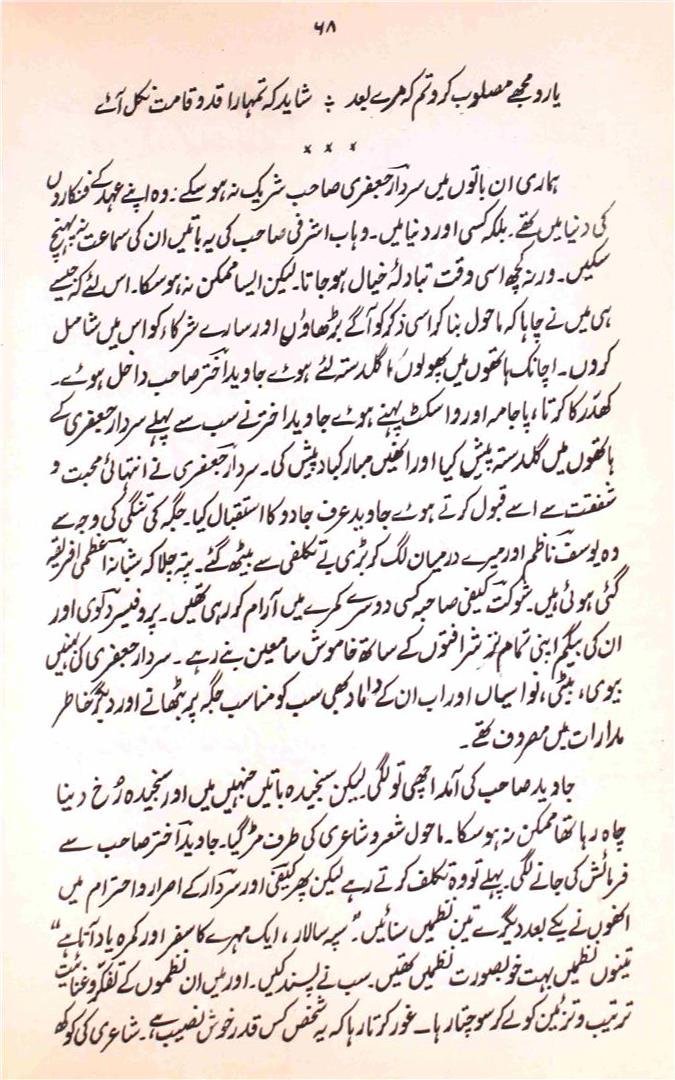 ۶۸
یارو مجھے مصلوب کرو تم کہ مرے بعد ؛ شاید کہ تمہارا قد و قامت نکل آئے
× × ×
ہماری ان باتوں میں سردار جعفری صاحب شریک نہ ہو سکے۔ وہ اپنے عہد کے فنکاروں
کی دنیا میں تھے۔ بلکہ کسی اور دنیا میں۔ وہاب اشرفی صاحب کی یہ باتیں ان کی سماعت تک نہ پہنچ
سکیں۔ ورنہ کچھ اسی وقت تبادلۂ خیال ہو جاتا۔ لیکن ایسا ممکن نہ ہو سکا۔ اس لئے کہ جیسے
ہی میں نے چاہا کہ ماحول بنا کر اسی ذکر کو آگے بڑھاؤں اور سارے شرکاء کو اس میں شامل
کروں۔ اچانک ہاتھوں میں پھولوں کا گلدستہ لئے ہوئے جاوید اختر صاحب داخل ہوئے۔
کھدّر کا کرتا، پاجامہ اور واسکٹ پہنے ہوئے جاوید اختر نے سب سے پہلے سردار جعفری کے
ہاتھوں میں گلدستہ پیش کیا اور انھیں مبارکباد پیش کی۔ سردار جعفری نے انتہائی محبت و
شفقت سے اسے قبول کرتے ہوئے جاوید عرف جادو کا استقبال کیا۔ جگہ کی تنگی کی وجہ سے
وہ یوسف ناظم اور میرے درمیان لگ کر بڑی بے تکلفی سے بیٹھ گئے۔ پتہ چلا کہ شبانہ اعظمی افریقہ
گئی ہوئی ہیں۔ شوکت کیفی صاحبہ کسی دوسرے کمرے میں آرام کر رہی تھیں۔ پروفیسر دلوی اور
ان کی بیگم اپنی تمام تر شرافتوں کے ساتھ خاموش سامعین بنے رہے۔ سردار جعفری کی بہنیں
بیوی، بیٹی، نواسیاں اور اب ان کے داماد بھی سب کو مناسب جگہ پر بٹھانے اور دیگر خاطر
مدارات میں مصروف تھے۔
جاوید صاحب کی آمد اچھی تو لگی لیکن سنجیدہ باتیں جنہیں میں اور سنجیدہ رُخ دینا
چاہ رہا تھا ممکن نہ ہو سکا۔ ماحول شعر و شاعری کی طرف مڑ گیا۔ جاوید اختر صاحب سے
فرمائش کی جانے لگی۔ پہلے تو وہ تکلف کرتے رہے لیکن پھر کیفی اور سردار کے اصرار و احترام میں
انھوں نے یکے بعد دیگرے تین نظمیں سنائیں۔ "سپہ سالار، ایک مہرے کا سفر اور کمرہ یاد آتا ہے"
تینوں نظمیں بہت خوبصورت نظمیں تھیں۔ سب نے پسند کیں۔ اور میں ان نظموں کے تفکر و غنائیت
ترتیب و تزئین کو لے کر سوچتا رہا۔ غور کرتا رہا کہ یہ شخص کس قدر خوش نصیب ہے۔ شاعری کی کوکھ